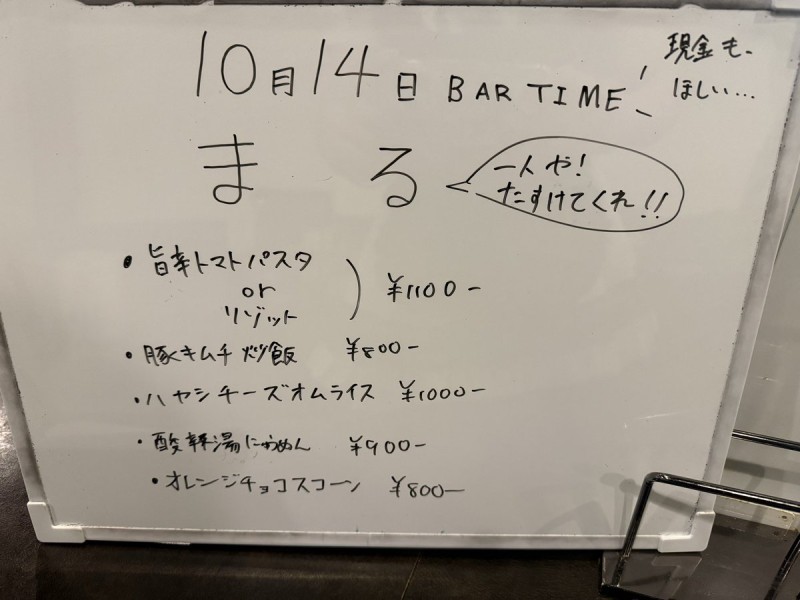 10月14日 BAR TIME!
現金も、
ほしい…
まる
一人や!
たすけてくれ!!
・旨辛トマトパスタ
or
リゾット
¥1100-
・豚キムチ炒飯 ¥800-
・ハヤシチーズオムライス ¥1000-
・酸辣湯にゅうめん ¥900-
・オレンジチョコスコーン ¥800-